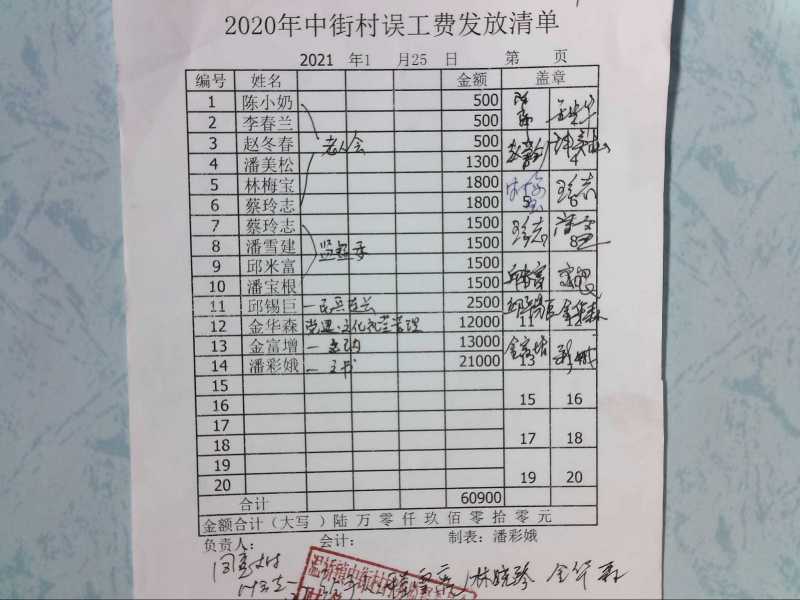 2020年中街村误工费发放清单
2021 年1 月25 日 第 页
编号 姓名 金额 盖章
1 陈小奶 500
2 李春兰 500
3 赵冬春 老人会 500
4 潘美松 1300 4
5 林梅宝 1800
6 蔡玲志 1800
7 蔡玲志 1500
8 潘雪建 1500 8
9 邱米富 1500
10 潘宝根 1500
11 邱锡巨 2500 11
12 金华森 12000 金华森
13 金富增 13000 金富增 13
14 潘彩娥 一 文书 21000
15 15 16
16
17 17 18
18
19 19 20
20
合计 60900
金额合计（大写 ）陆 万 零 仟 玖 佰 零 拾 零 元
负责人： 会计： 制表：潘彩娥
同意支付 林晓琴 金华森